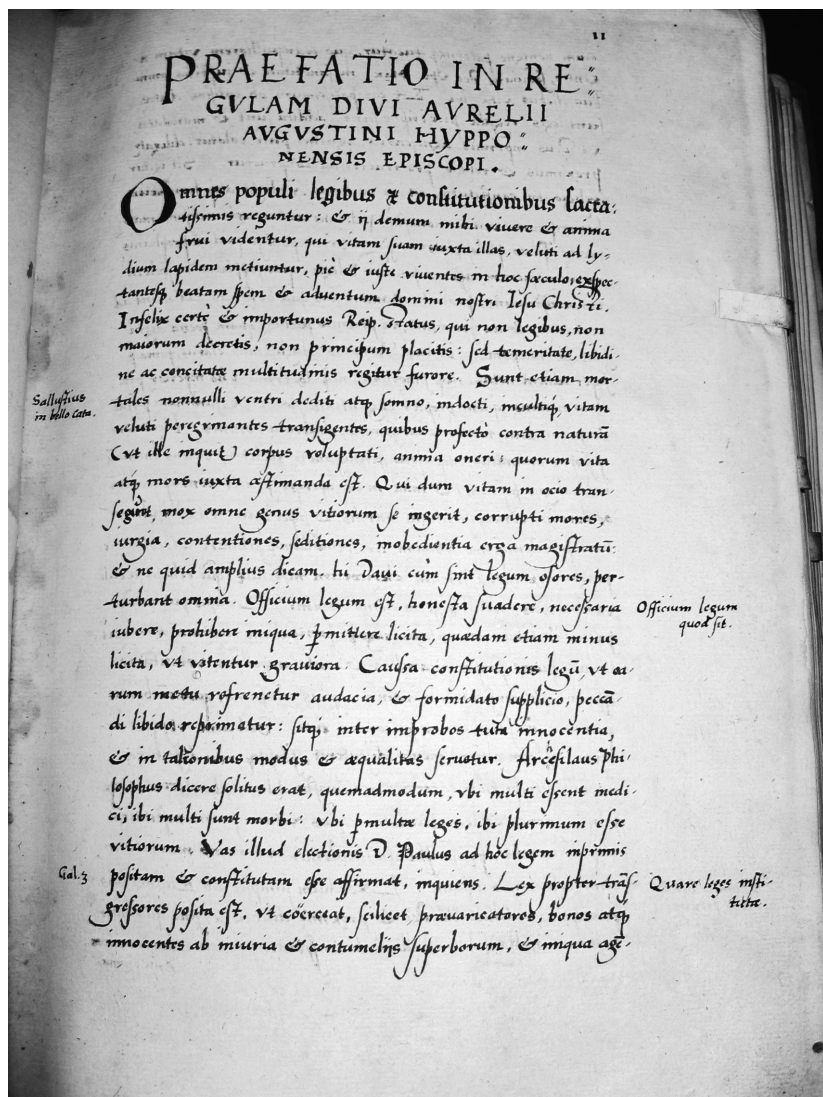 11
PRAEFATIO IN RE„
GVLAM DIVI AVRELII
AVGVSTINI HYPPO„
NENSIS EPISCOPI.
Omnes populi legibus & constitutionibus sacra,
tissimis reguntur: & ij demum mihi vivere & anima
frui videntur, qui vitam suam iuxta illas, veluti ad ly-
dium lapidem metiuntur, piè & iuste viventes in hoc sæculo, exspec-
tantesq; beatam spem & adventum domini nostri Iesu Christi.
Infelix certè & importunus Reip. status, qui non legibus, non
maiorum decretis, non principum placitis: sed temeritate, libidi-
ne ac concitatæ multitudinis regitur furore. Sunt etiam mor-
Sallustius
in bello Cata.
tales nonnulli ventri dediti atq; somno, indocti, incultiq; vitam
veluti peregrinantes transigentes, quibus profectò contra naturā
(vt ille inquit) corpus voluptati, anima oneri: quorum vita
atq; mors iuxta æstimanda est. Qui dum vitam in ocio tran-
segūnt, mox omne genus vitiorum se ingerit, corrupti mores,
iurgia, contentiones, seditiones, inobedientia erga magistratū:
& ne quid amplius dicam. hi Davi cùm sint legum osores, per-
turbant omnia. Officium legum est, honesta suadere, necessaria
Officium legum
quod sit.
iubere, prohibere iniqua, p̱mittere licita, quædam etiam minus
licita, vt vitentur graviora. Caussa constitutionis legū, vt ea-
rum metu refrenetur audacia, & formidato supplicio, peccā-
di libido reprimatur: sitq; inter improbos tuta innocentia,
& in talionibus modus & æqualitas servetur. Arcesilaus Phi-
losophus dicere solitus erat, quemadmodum, vbi multi essent medi-
ci, ibi multi sunt morbi: vbi p̱multæ leges, ibi plurimum esse
vitiorum. Vas illud electionis D. Paulus ad hoc legem inprimis
Gal. 3
positam & constitutam esse affirmat, inquiens. Lex propter trāſ-
Quare leges insti-
tutæ.
gressores posita est, vt coërceat, scilicet prævaricatores, bonos atq;
innocentes ab iniuria & contumeliis superborum, & iniqua agē-